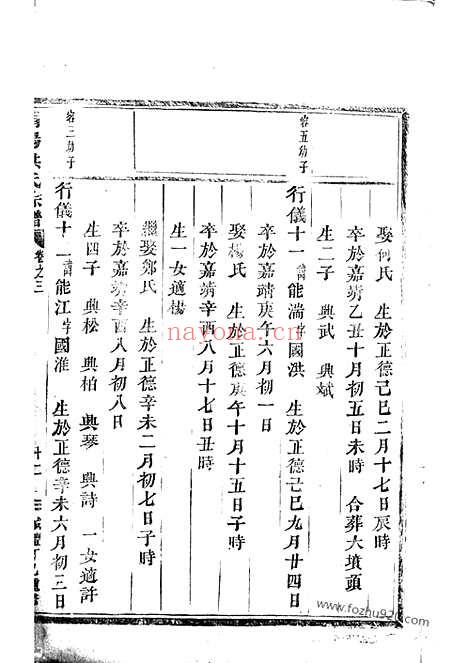 娶何氏 生於正德己巳二月十七日辰時
卒於嘉靖乙丑十月初五日未時 合葬大墳頭
生二子 興武 興斌
容五幼子
行儀十一 諱能湍字國洪 生於正德己巳九月廿四日
卒於嘉靖庚午六月初一日
娶楊氏 生於正德庚午十月十五日子時
卒於嘉靖辛酉八月十七日丑時
生一女適楊
繼娶鄭氏 生於正德辛未二月初七日子時
卒於嘉靖辛酉八月初八日
生四子 興松 興柏 興琴 興詩 一女適許
容三幼子
行儀十二 諱能江字國淮 生於正德辛未六月初三日
洪氏宗譜 卷之三
nayona.cn
www.fozhu920.com